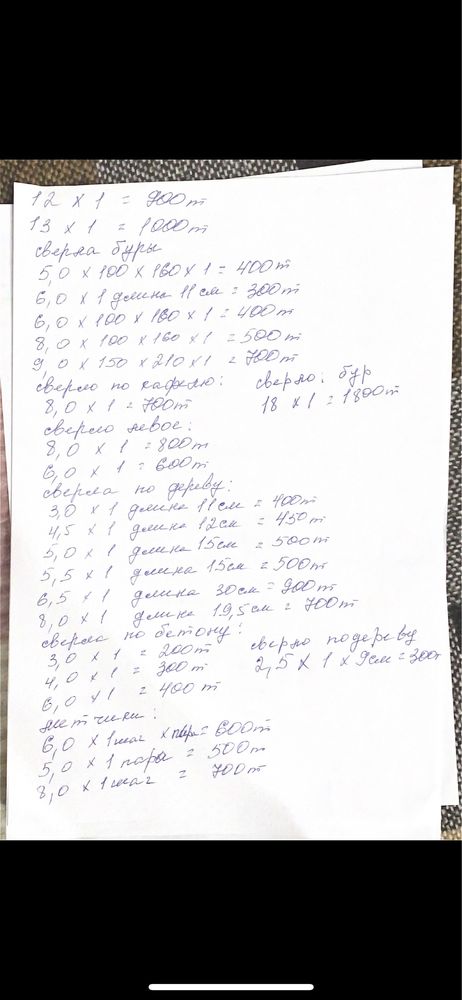 12 x 1 = 900т
13 x 1 = 1000т
сверла буры
5,0 x 100 x 160 x 1 = 400т
6,0 x 1 длина 11 см = 300т
6,0 x 100 x 160 x 1 = 400т
8,0 x 100 x 160 x 1 = 500т
9,0 x 150 x 210 x 1 = 700т
сверло по кафелю:
8,0 x 1 = 700т
сверло: бур
18 x 1 = 1800т
сверло левое:
8,0 x 1 = 800т
6,0 x 1 = 600т
сверла по дереву:
3,0 x 1 длина 11см = 400т
4,5 x 1 длина 12см = 450т
5,0 x 1 длина 15см = 500т
5,5 x 1 длина 15см = 500т
6,5 x 1 длина 30см = 900т
8,0 x 1 длина 19,5см = 700т
сверла по бетону:
3,0 x 1 = 200т
4,0 x 1 = 300т
6,0 x 1 = 400т
сверло по дереву
2,5 x 1 x 9см = 300т
метчики:
6,0 x 1 шаг x пара = 600т
5,0 x 1 пара = 500т
8,0 x 1 шаг = 700т